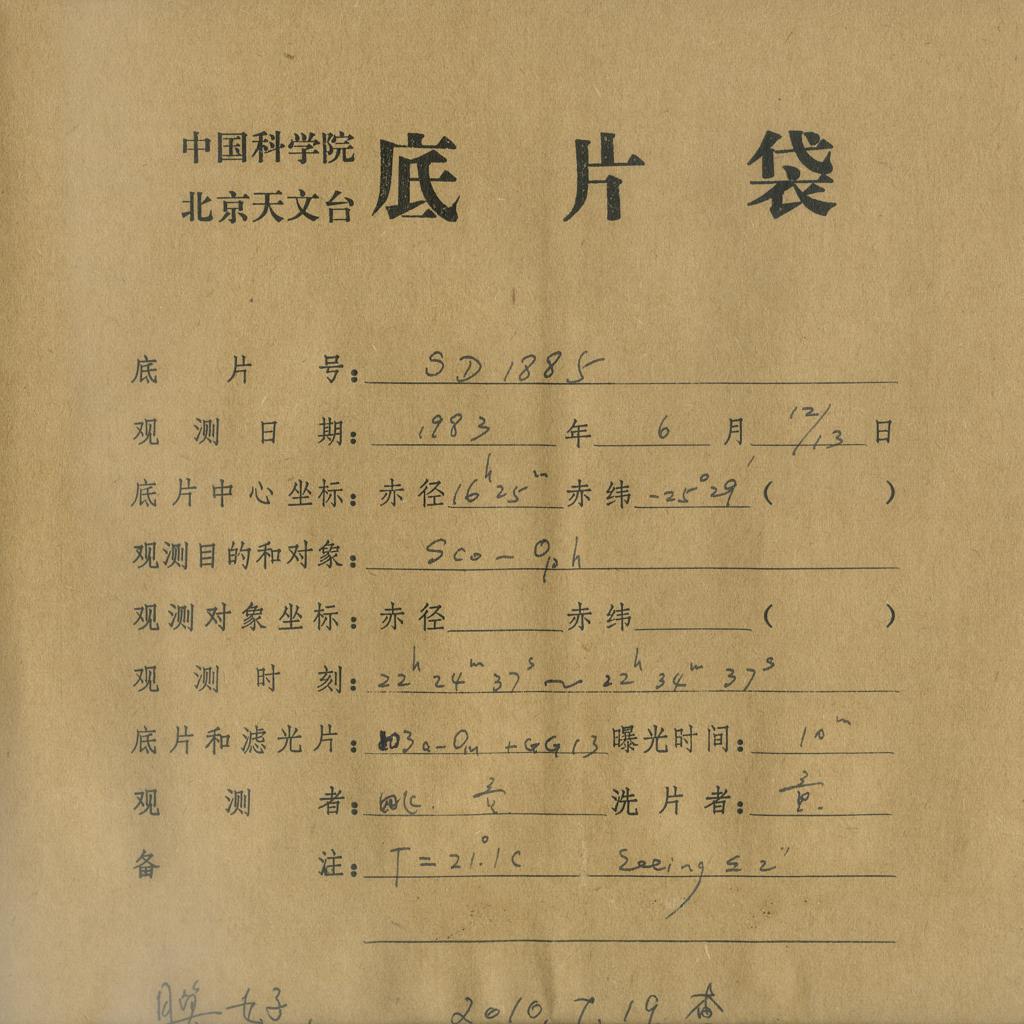 中国科学院
北京天文台
底片袋
底片号: SD 1885
观测日期: 1983年6月12/13日
底片中心坐标: 赤径16h25m 赤纬-25°29′ ( )
观测目的和对象: Sco-Oph
观测对象坐标: 赤径 赤纬 ( )
观测时刻: 22h 24m 37s ~ 22h 34m 37s
底片和滤光片: 103a-O + GG13 曝光时间: 10m
观测者: 洗片者:
备注: T=21°.1C Seeing ≤ 2"
2010.7.19